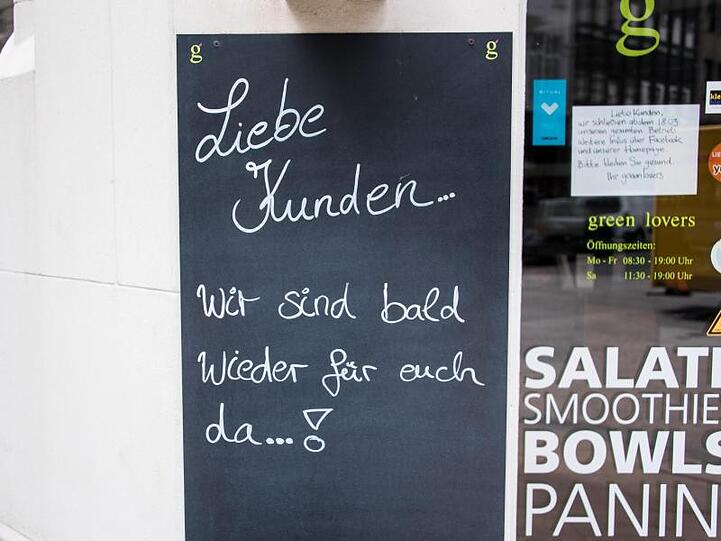 g g
Liebe
Kunden...
Wir sind bald
Wieder für euch
da...!
g
RITUAL
Liebe Kunden,
wir schließen ab dem 18.03
unseren gesamten Betrieb
Weitere Infos über Facebook
und unserer Homepage.
Bitte bleiben Sie gesund.
Ihr greenlovers
green lovers
Öffnungszeiten:
Mo - Fr 08:30 - 19:00 Uhr
Sa 11:30 - 19:00 Uhr
SALATE
SMOOTHIE
BOWLS
PANIN